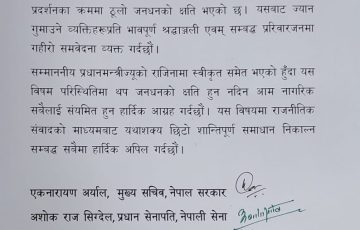 प्रदर्शनका क्रममा ठूलो जनधनको क्षति भएको छ । यसबाट ज्यान
गुमाउने व्यक्तिहरूप्रति भावपूर्ण श्रद्धाञ्जली एवम् सम्बद्ध परिवारजनमा
गहीरो समवेदना व्यक्त गर्दछौं ।
सम्माननीय प्रधानमन्त्रीज्यूको राजिनामा स्वीकृत समेत भएको हुँदा यस
विषम परिस्थितिमा थप जनधनको क्षति हुन नदिन आम नागरिक
सबैलाई संयमित हुन हार्दिक आग्रह गर्दछौं । यस विषयमा राजनीतिक
संवादको माध्यमबाट यथाशक्य छिटो शान्तिपूर्ण समाधान निकाल्न
सम्बद्ध सबैमा हार्दिक अपिल गर्दछौं ।
एकनारायण अर्याल, मुख्य सचिव, नेपाल सरकार
अशोक राज सिग्देल, प्रधान सेनापति, नेपाली सेना